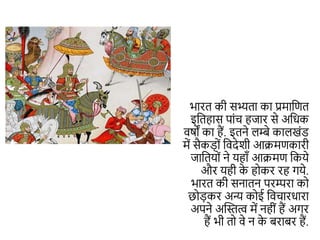 भारत की सभ्यता का प्रमाणित
इतिहास पांच हजार से अधिक
वर्षों का हैं. इतने लम्बे कालखंड
में सेकड़ों विदेशी आक्रमणकारी
जातियों ने यहाँ आक्रमण किये
और यही के होकर रह गये.
भारत की सनातन परम्परा को
छोड़कर अन्य कोई विचारधारा
अपने अस्तित्व में नहीं हैं अगर
हैं भी तो वे न के बराबर हैं.